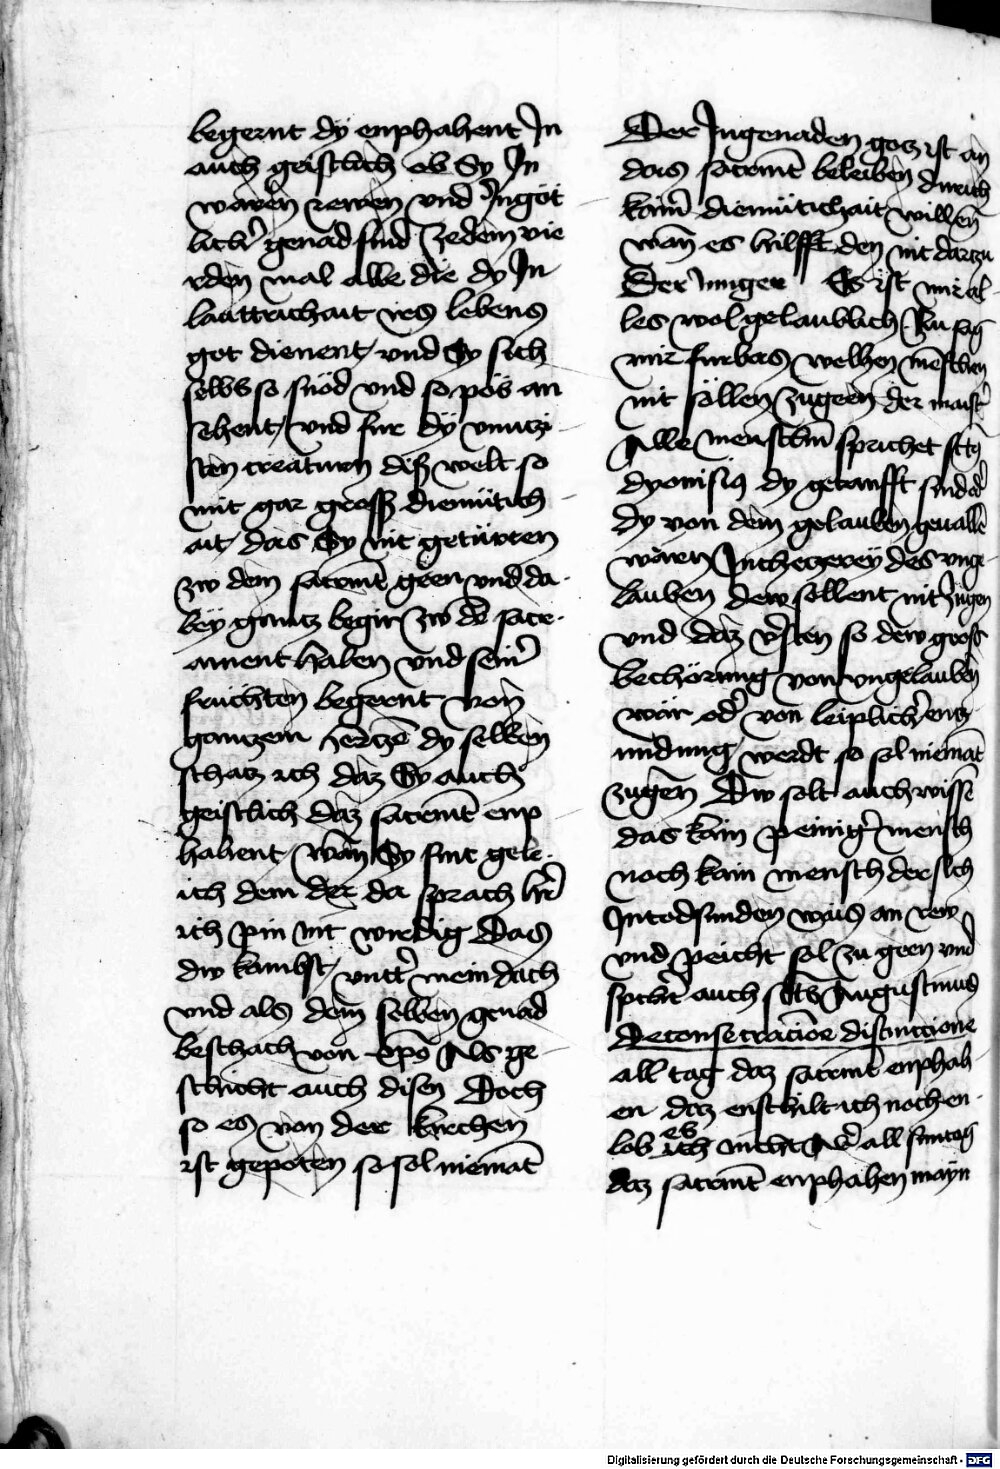 begernt dÿ enphahent Jn
auch geistlich ob Sy Jn
waren rewen vnd Jngöt
licher genad sind Zedem vie
rden mal alle die dy Jn
lauttrichait irs lebens
got dienent vnd Sy sich
selbs so snöd vnd so pös an
sehent vnd fur dÿ vnnuczi
sten creaturn diser welt so
mit gar grosser diemütich
ait das Sy nit getürren
zw dem sacrament geen vnd da
beÿ gantz begir zw dem sacr
ament haben vnd seiner
früchten begernt von
ganczem herczen dy selben
schacz ich daz Sy auch
geistlich daz sacrament enp
hahent wan Sy sint gele
ich dem der da sprach herr
ich pin nit wirdig Das
dw kambst vntter mein dach
vnd als dem selben genad
beschach von xpo Als ge
schicht auch disen Doch
so es von der kirchen
ist gepoten so sol niemant
Der Jngenaden gocz ist an
das sacrament beleiben durich
kainer diemütichait willen
wan es hilfft den nit darczu
Der Junger Es ist mir al
les wol gelaublich Nu sag
mir furbas welhen menschen
nit söllen zugeen der maister
Alle menschen sprichet sanctus
dyonisius dy getaufft sind oder
dy von dem gelauben geuallen
waren Jn checzereÿ des vnge
lauben dew sollent nit zugen
vnd daz ersten so dew gross
bechörung von vngelauben
wär oder von leiplicher encz
undung werdt so sol niemant
zugen Dw solt auch wissen
das kain peiniger mensch
noch kain mensch der sich
Jn todsunden wais an rew
vnd peicht sol zu geen vnd
spricht auch sanctus Augustinus
De consecracione distinctione
all tag daz sacrament enphah
en daz enschilt ich noch en
lob ich es nicht Aber all suntag
daz sacrament enphahen mayn
Digitalisierung gefördert durch die Deutsche Forschungsgemeinschaft - DFG